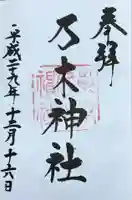 奉拝
乃木神社
平成二十九年十二月十六日